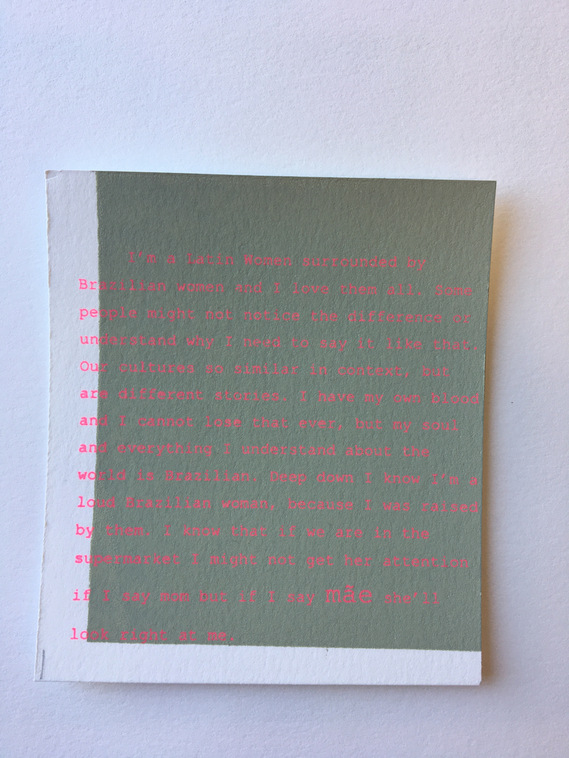 I'm a Latin Woman surrounded by
Brazilian women and I love them all. Some
people might not notice the difference or
understand why I need to say it like that.
Our cultures so similar in context, but
are different stories. I have my own blood
and I cannot lose that ever, but my soul
and everything I understand about the
world is Brazilian. Deep down I know I'm a
loud Brazilian woman, because I was raised
by them. I know that if we are in the
supermarket I might not get her attention
if I say mom but if I say mãe she'll
look right at me.